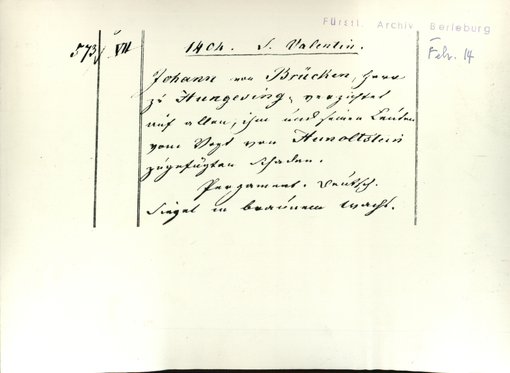 Fürstl. Archiv Berleburg
573/ VII
1404. S. Valentin.
Febr. 14
Johann von Brücken, Herr
zu Hungering, verzichtet
auf allen, ihm und seinen Leuten
vom Vogt von Hunoltstein
zugefügten Schaden.
Pergament. Deutsch.
Siegel in braunem Wachs.